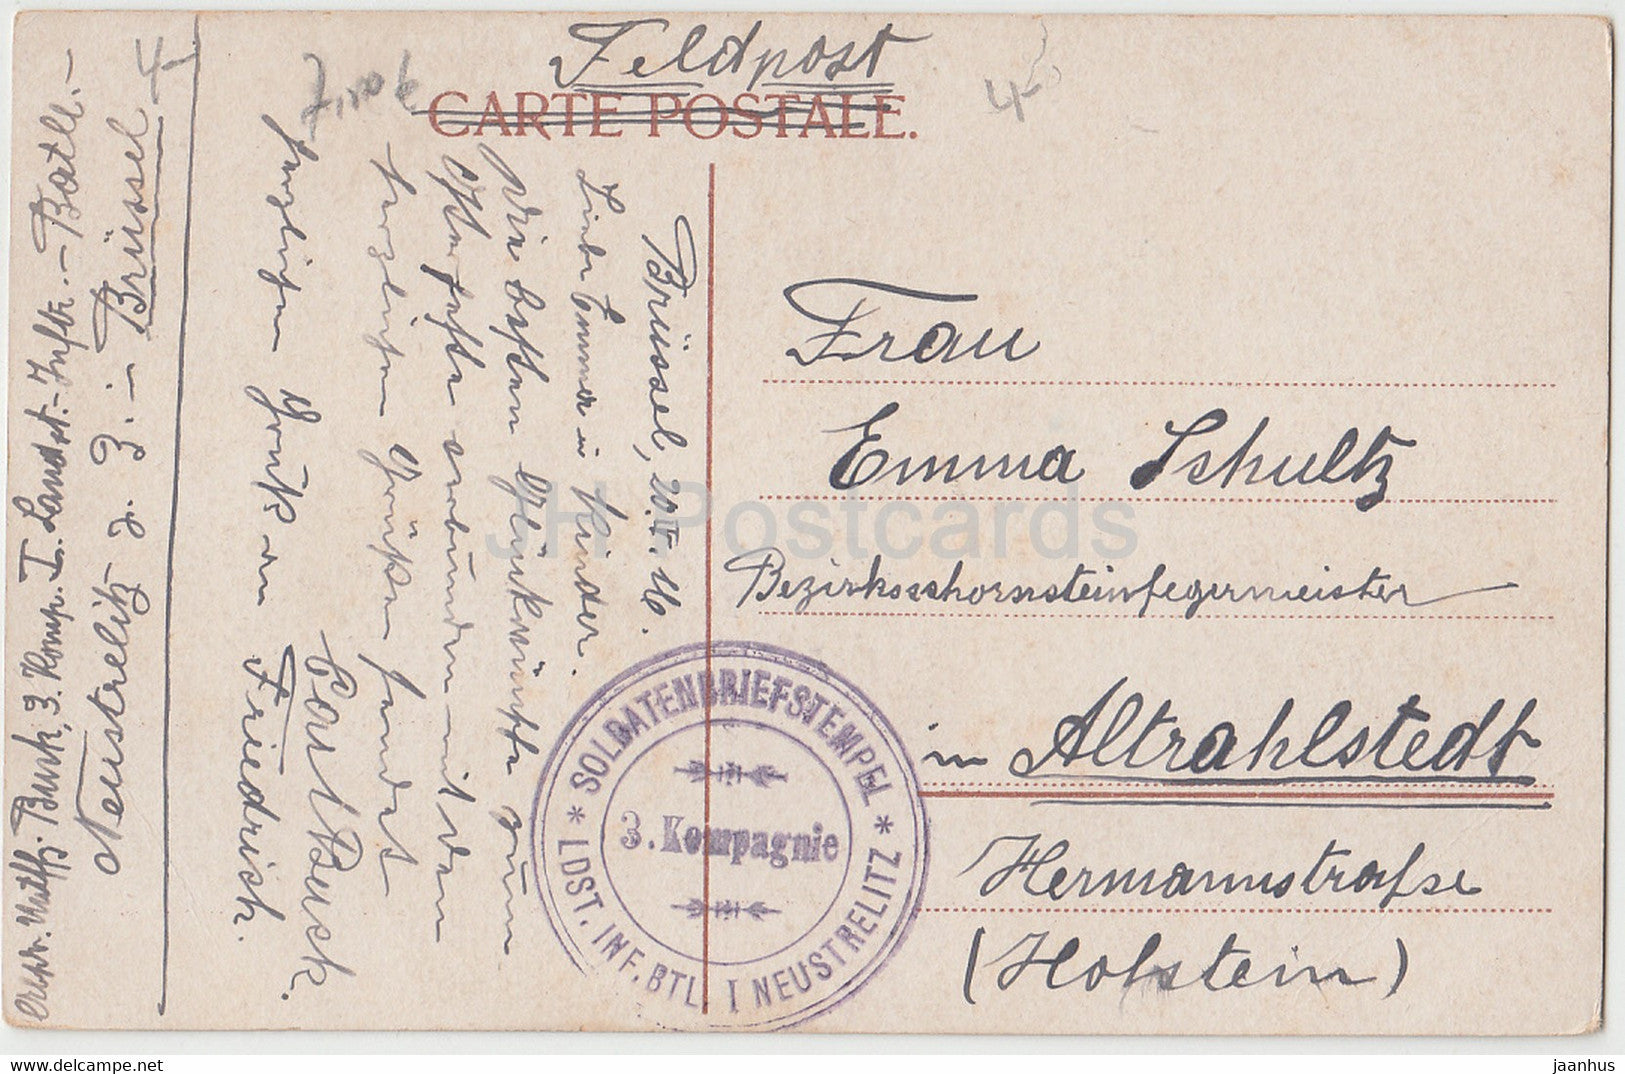 Feldpost
CARTE POSTALE.
4-
4-
Brüssel, 20. IV. 16.
Liebe Emma u Kinder.
Die besten Glückwünsche zum
Osterfeste verbunden mit den
herzlichsten Grüßen sendet
Carl Busk.
herzlichen Gruß an Friedrich.
Busk, 3. Komp. I. Landst.-Inftr.-Batl.-
Neustrelitz z. Z. - Brüssel
Frau
Emma Schultz
Bezirksschornsteinfegermeister
in Altrahlstedt
Hermannstraße
(Holstein)
SOLDATENBRIEFSTEMPEL
3. Kompagnie
* LDST. INF. BTL. I NEUSTRELITZ *
JH Postcards
jaanhus
www.delcampe.net